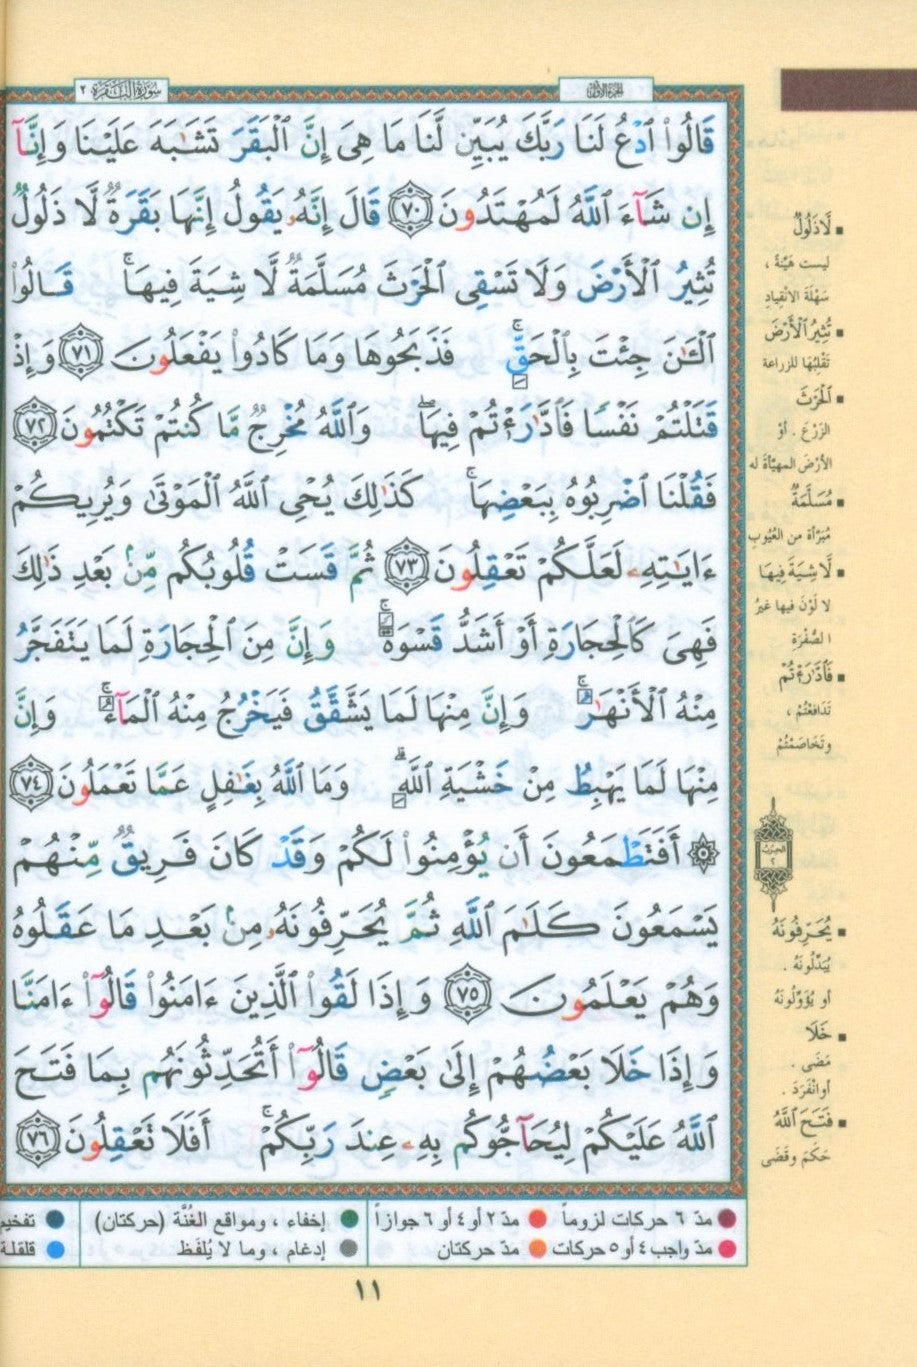 الجزء الأول
سورة البقرة ٢
قَالُوا۟ ٱدْعُ لَنَا رَبَّكَ يُبَيِّن لَّنَا مَا هِىَ إِنَّ ٱلْبَقَرَ تَشَٰبَهَ عَلَيْنَا وَإِنَّآ
إِن شَآءَ ٱللَّهُ لَمُهْتَدُونَ ٧٠ قَالَ إِنَّهُۥ يَقُولُ إِنَّهَا بَقَرَةٌ لَّا ذَلُولٌ
تُثِيرُ ٱلْأَرْضَ وَلَا تَسْقِى ٱلْحَرْثَ مُسَلَّمَةٌ لَّا شِيَةَ فِيهَا ۚ قَالُوا۟
ٱلْـَٰٔنَ جِئْتَ بِٱلْحَقِّ ۚ فَذَبَحُوهَا وَمَا كَادُوا۟ يَفْعَلُونَ ٧١ وَإِذْ
قَتَلْتُمْ نَفْسًا فَٱدَّٰرَْٰٔتُمْ فِيهَا ۖ وَٱللَّهُ مُخْرِجٌ مَّا كُنتُمْ تَكْتُمُونَ ٧٢
فَقُلْنَا ٱضْرِبُوهُ بِبَعْضِهَا ۚ كَذَٰلِكَ يُحْىِ ٱللَّهُ ٱلْمَوْتَىٰ وَيُرِيكُمْ
ءَايَٰتِهِۦ لَعَلَّكُمْ تَعْقِلُونَ ٧٣ ثُمَّ قَسَتْ قُلُوبُكُم مِّنۢ بَعْدِ ذَٰلِكَ
فَهِىَ كَٱلْحِجَارَةِ أَوْ أَشَدُّ قَسْوَةً ۚ وَإِنَّ مِنَ ٱلْحِجَارَةِ لَمَا يَتَفَجَّرُ
مِنْهُ ٱلْأَنْهَٰرُ ۚ وَإِنَّ مِنْهَا لَمَا يَشَّقَّقُ فَيَخْرُجُ مِنْهُ ٱلْمَآءُ ۚ وَإِنَّ
مِنْهَا لَمَا يَهْبِطُ مِنْ خَشْيَةِ ٱللَّهِ ۗ وَمَا ٱللَّهُ بِغَٰفِلٍ عَمَّا تَعْمَلُونَ ٧٤
۞ أَفَتَطْمَعُونَ أَن يُؤْمِنُوا۟ لَكُمْ وَقَدْ كَانَ فَرِيقٌ مِّنْهُمْ
يَسْمَعُونَ كَلَٰمَ ٱللَّهِ ثُمَّ يُحَرِّفُونَهُۥ مِنۢ بَعْدِ مَا عَقَلُوهُ
وَهُمْ يَعْلَمُونَ ٧٥ وَإِذَا لَقُوا۟ ٱلَّذِينَ ءَامَنُوا۟ قَالُوٓا۟ ءَامَنَّا
وَإِذَا خَلَا بَعْضُهُمْ إِلَىٰ بَعْضٍ قَالُوٓا۟ أَتُحَدِّثُونَهُم بِمَا فَتَحَ
ٱللَّهُ عَلَيْكُمْ لِيُحَآجُّوكُم بِهِۦ عِندَ رَبِّكُمْ ۚ أَفَلَا تَعْقِلُونَ ٧٦
لَّا ذَلُولٌ
ليست هَيِّنةً ،
سَهْلَةَ الانْقِيادِ
تُثِيرُ ٱلْأَرْضَ
تَقْلِبُهَا للزراعة
ٱلْحَرْثَ
الزَرْعَ . أوْ
الأرْضَ المهيَّأةَ له
مُسَلَّمَةٌ
مُبَرَّأة من العُيُوبِ
لَّا شِيَةَ فِيهَا
لا لَوْنَ فيها غيرُ
الصُّفْرَةِ
فَٱدَّٰرَْٰٔتُمْ
تَدَافَعْتُمْ ،
وتَخَاصَمْتُمْ
الحزب
٢
يُحَرِّفُونَهُ
يُبَدِّلُونَهُ .
أو يُؤَوِّلُونَهُ
خَلَا
مَضَى .
أو انْفَرَدَ .
فَتَحَ ٱللَّهُ
حَكَمَ وقَضَى
مدّ ٦ حركات لزوماً مدّ ٢ أو ٤ أو ٦ جوازاً إخفاء ، ومواقع الغُنَّة (حركتان) تفخيم
مدّ واجب ٤ أو ٥ حركات مدّ حركتان إدغام ، وما لا يُلفَظ قلقلة
١١